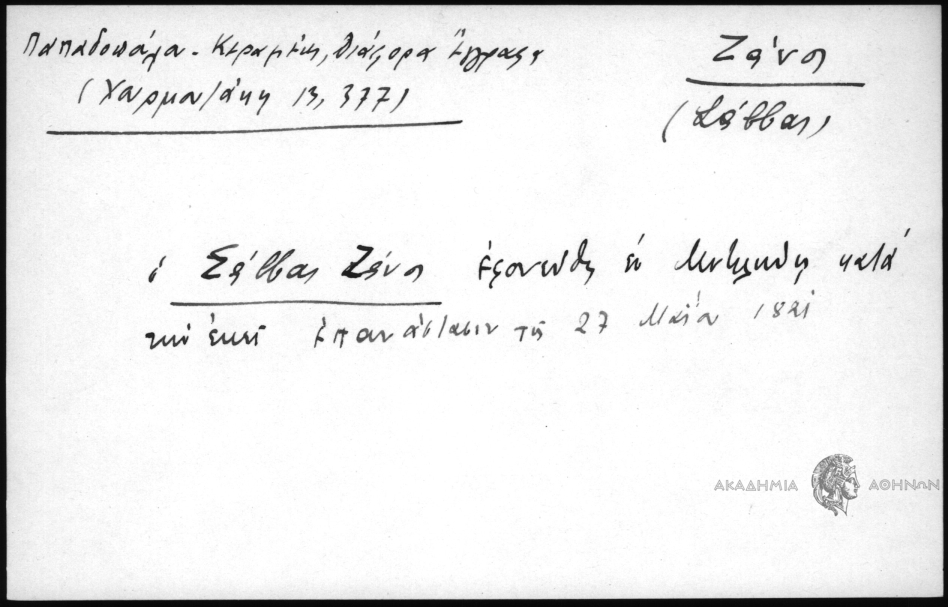 Παπαδοπούλου - Κεραμέως, Διάφορα Ἔγγραφα
(Χαρμουζάκη 13, 377)
Ζάνος
(Σάββας)
ὁ Σάββας Ζάνος ἐφονεύθη ἐν Μυτιλήνῃ κατὰ
τὴν ἐκεῖ ἐπανάστασιν τῆς 27 Μαΐου 1821
ΑΚΑΔΗΜΙΑ ΑΘΗΝΩΝ